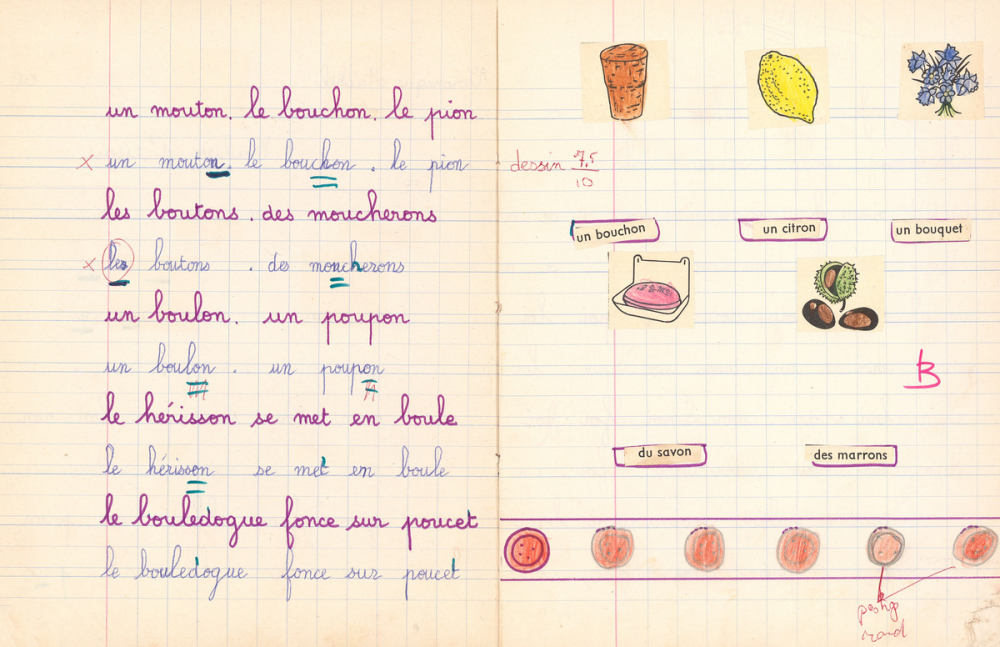 un mouton. le bouchon. le pion
x un mouton. le bouchon. le pion
les boutons. des moucherons
x les boutons. des moucherons
un boulon. un poupon
un boulon. un poupon
le hérisson se met en boule
le hérisson se met en boule
le bouledogue fonce sur poucet
le bouledogue fonce sur poucet
dessin 7,5
10
un bouchon un citron un bouquet
B
du savon des marrons